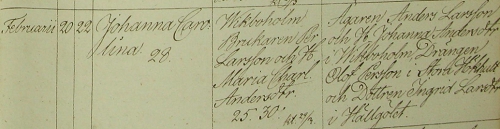 Februarii 20 22 Johanna Caro-
lina
28.
Wikboholm
Brukaren Per
Larsson och H
Maria Charl.
Andersdtr.
25. 30.
Ägaren Anders Larsson
och H. Johanna Andersdtr
i Wikboholm, Drängen
Olof Persson i Stora
och Dottren Ingrid Larsdtr
i Hällgölet.